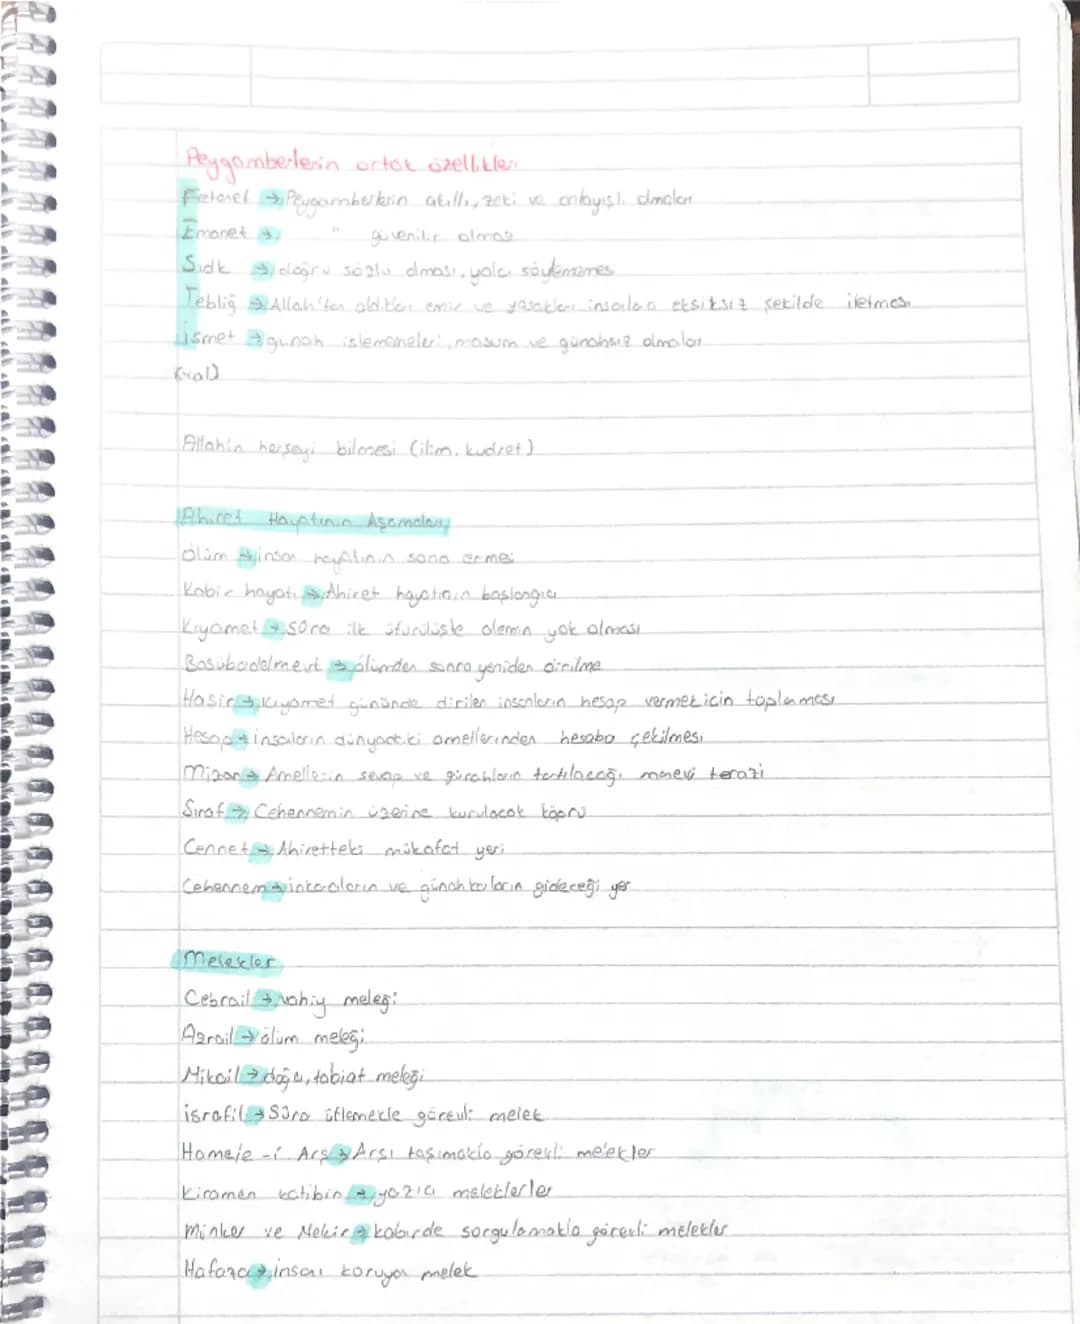 Peygamberlerin ortak özellikleri
Fetanet → Peygamberlerin akıllı, zeki ve anlayışlı olmaları
Emanet → " güvenilir olması
Sıdk → doğru sözlü olması, yalan söylememesi
Tebliğ → Allah'tan aldıkları emir ve yasakları insanlara eksiksiz şekilde iletmesi
İsmet → günah işlememeleri, masum ve günahsız olmaları
Allahın herşeyi bilmesi (ilim, kudret)
Ahiret Hayatının Aşamaları
Ölüm → insan hayatının sona ermesi
Kabir hayatı → Ahiret hayatının başlangıcı
Kıyamet → Sûra ilk üfürülüşle alemin yok olması
Basubadelmevt → ölümden sonra yeniden dirilme
Haşir → Kıyamet gününde dirilen insanların hesap vermek için toplanması
Hesap → insanların dünyadaki amellerinden hesaba çekilmesi
Mizan → Amellerin sevap ve günahların tartılacağı manevi terazi
Sırat → Cehennemin üzerine kurulacak köprü
Cennet → Ahiretteki mükafat yeri
Cehennem → inkarcıların ve günahkarların gideceği yer
Melekler
Cebrail → vahiy meleği
Azrail → ölüm meleği
Mikail → doğa, tabiat meleği
İsrafil → Sûra üflemekle görevli melek
Hamele-i Arş → Arşı taşımakla görevli melekler
Kiramen katibin → yazıcı meleklerler
Minker ve Nekir → kabirde sorgulamakla görevli melekler
Hafaza → insanı koruyan melek